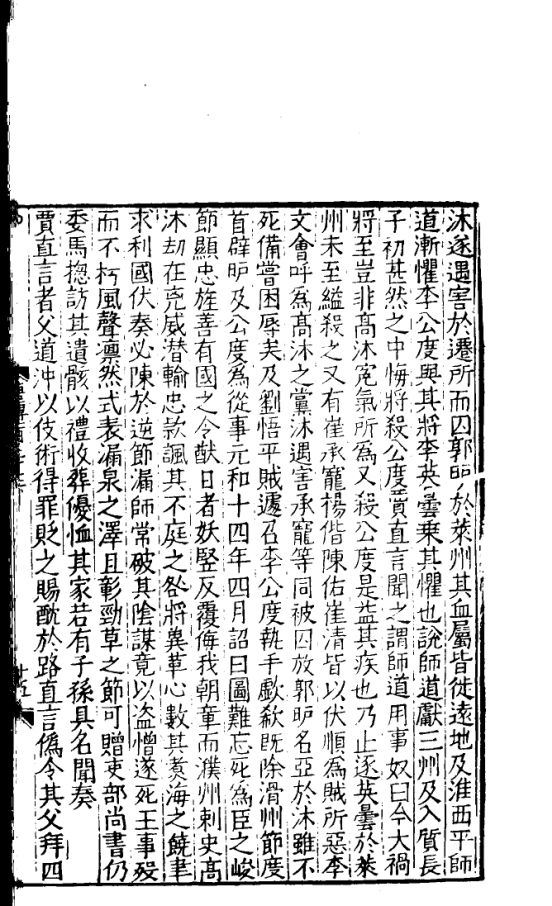 沐遂遇害於遷所而囚郭昈於萊州其血屬皆徙遠地及淮西平師
道漸懼李公度與其將李英曇乗其懼也說師道獻三州及入質長
子初甚然之中悔將殺公度賈直言聞之謂師道用事奴曰今大禍
將至豈非髙沐寃氣所爲又殺公度是益其疾也乃止逐英曇於萊
州未至縊殺之又有崔承寵楊偕陳佑崔清皆以伏順爲賊所惡李
文會呼爲髙沐之黨沐遇害承寵等同被囚放郭昈名亞於沐雖不
死備嘗困辱矣及劉悟平賊遽召李公度執手歔欷旣除滑州節度
首辟昈及公度爲從事元和十四年四月詔曰圖難忘死爲臣之峻
節顯忠旌善有國之令猷日者妖竪反覆侮我朝章而濮州刺史髙
沐刧在兇威潜輸忠款諷其不庭之咎將革心數其煑海之饒聿
求利國伏奏必陳於逆節漏師常破其陰謀竟以盗憎遂死王事殁
而不朽風聲凛然式表漏泉之澤且彰勁草之節可贈吏部尚書仍
委馬揔訪其遺骸以禮收葬優恤其家若有子孫具名聞奏
賈直言者父道沖以伎術得罪貶之賜酖於路直言僞令其父拜四